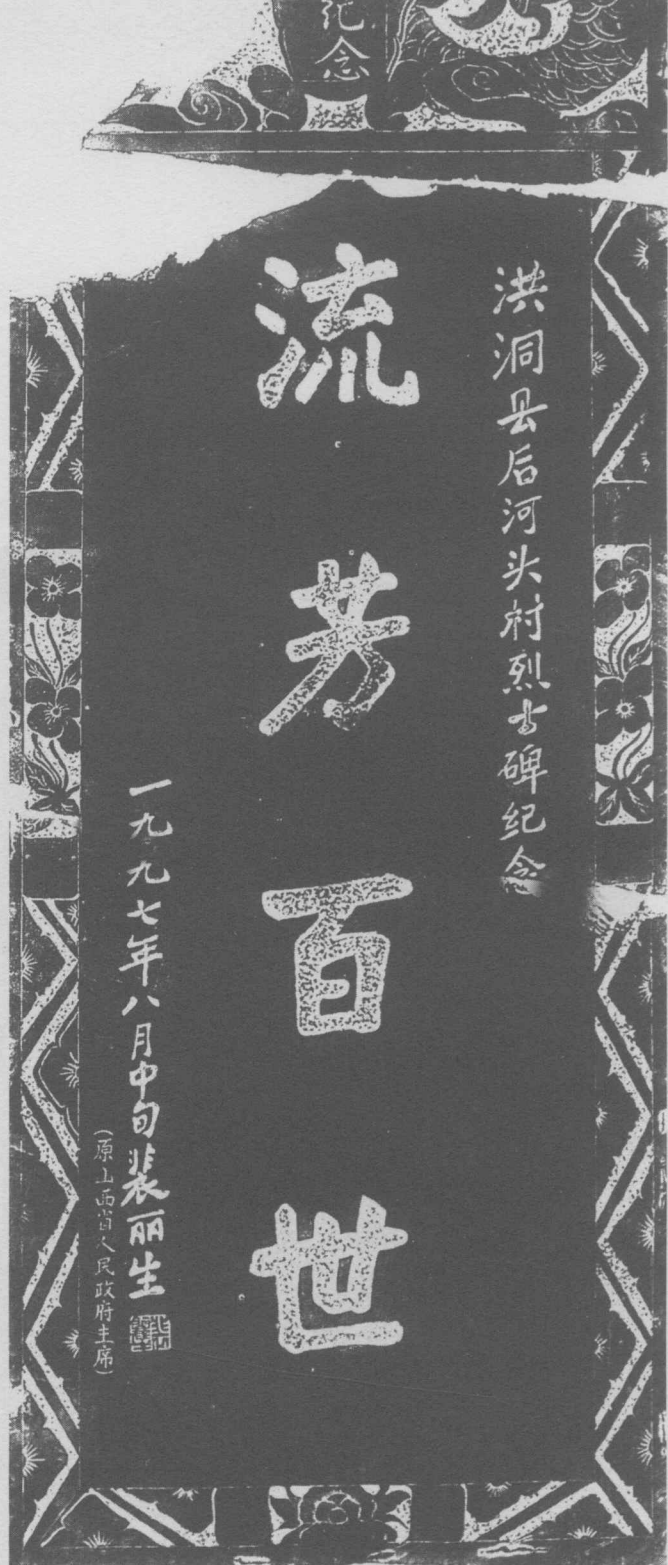 纪念
洪洞县后河头村烈士碑纪念
流芳百世
一九九七年八月中旬裴丽生
(原山西省人民政府主席)